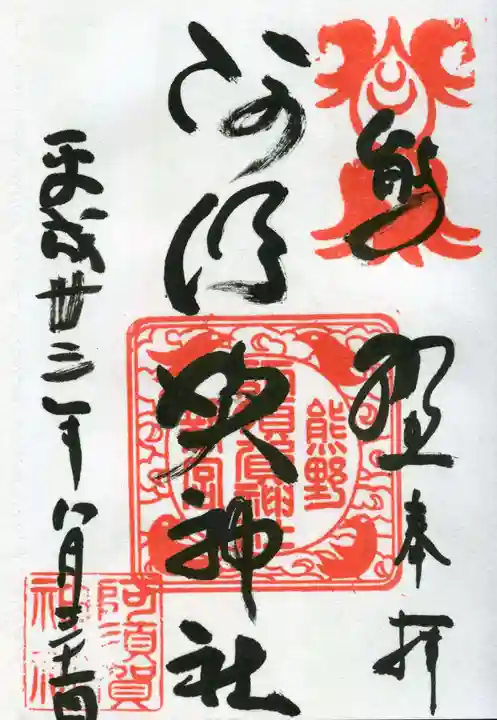 熊野奉拝
阿須賀神社
平成廿三年八月三十一日
熊野
阿須賀神社
阿須賀
神社